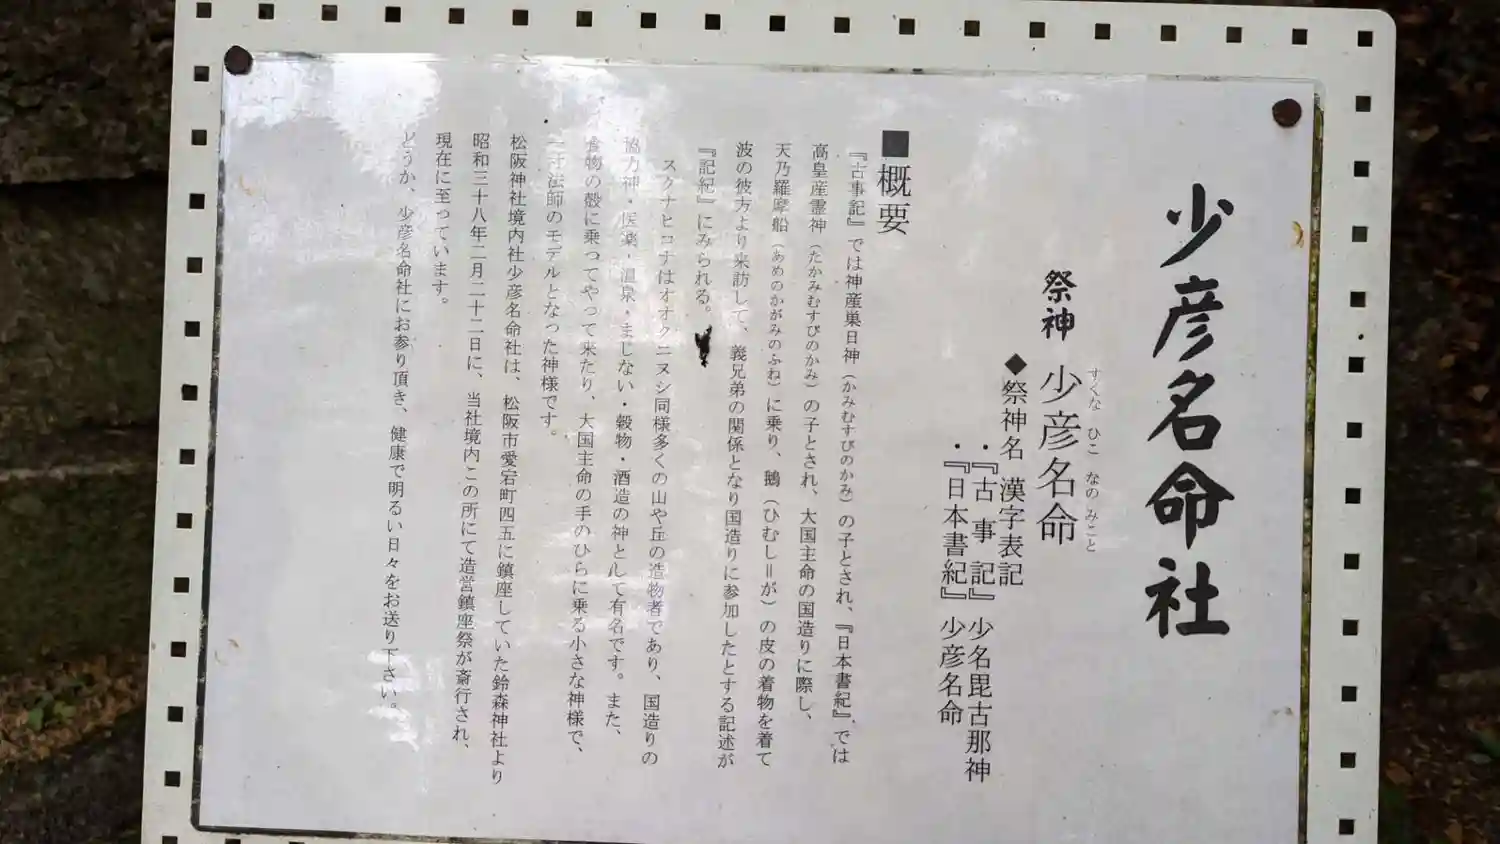 少彦名命社
祭神 少彦名命
すくな ひこ なのみこと
◆祭神名 漢字表記
・『古事記』 少名毘古那神
・『日本書紀』 少彦名命
■概要
『古事記』では神産巣日神(かみむすびのかみ)の子とされ、『日本書紀』では
高皇産霊神(たかみむすびのかみ)の子とされ、大国主命の国造りに際し、
天乃羅摩船(あめのかがみのふね)に乗り、鵝(ひむし=が)の皮の着物を着て
波の彼方より来訪して、義兄弟の関係となり国造りに参加したとする記述が
『記紀』にみられる。
スクナヒコナはオオクニヌシ同様多くの山や丘の造物者であり、国造りの
協力神・医薬・温泉・まじない・穀物・酒造の神として有名です。また、
食物の殻に乗ってやって来たり、大国主命の手のひらに乗る小さな神様で、
一寸法師のモデルとなった神様です。
松阪神社境内社少彦名命社は、松阪市愛宕町四五に鎮座していた鈴森神社より
昭和三十八年二月二十二日に、当社境内この所にて造営鎮座祭が斎行され、
現在に至っています。
どうか、少彦名命社にお参り頂き、健康で明るい日々をお送り下さい。